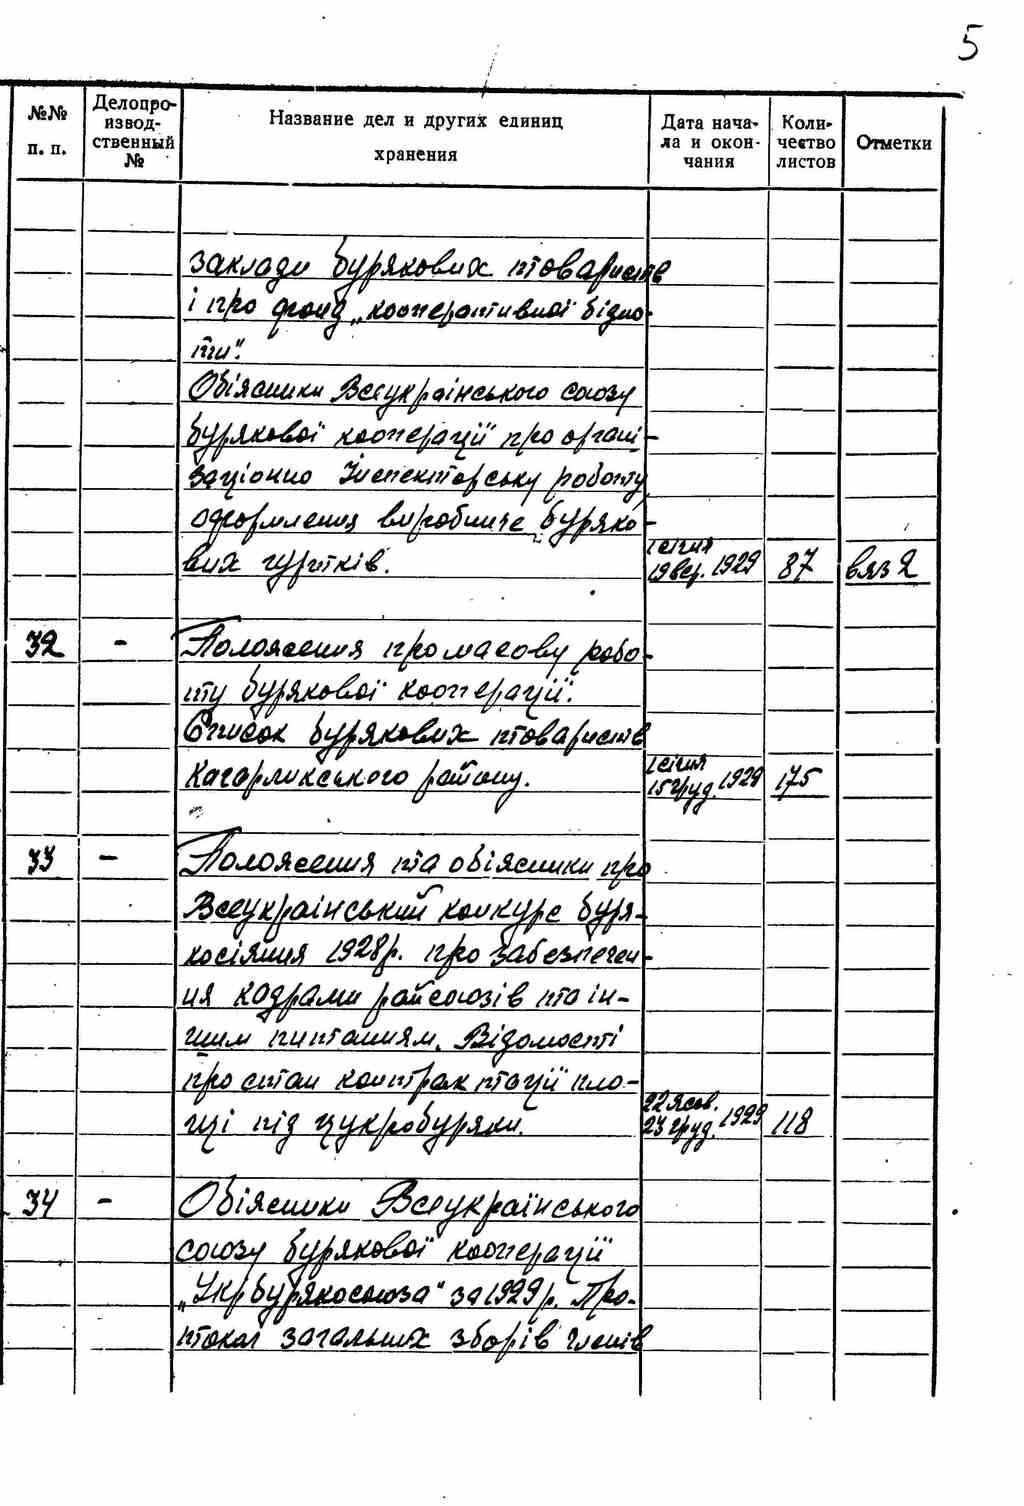 5
№№ п. п.
Делопро-
извод-
ственный
№
Название дел и других единиц
хранения
Дата нача-
ла и окон-
чания
Коли-
чество
листов
Отметки
заклади бурякових товариств
і про фонд „кооперативної бідно-
ти".
Обіясники Всеукраінського союзу
бурякової кооперації про органі-
заціонно Інспекторську роботу
оформлення виробниче буряко-
вих гуртків.
1 січня
19 вер. 1929
87
вяз 2
32
-
Положення про масову робо-
ту бурякової кооперації.
Список бурякових товариств
Кагарликського району.
1 січня
15 груд. 1929
175
33
-
Положення та обіясники про
Всеукраінський конкурс буря-
косіяння 1928 р. про забезпечен-
ня кадрами райсоюзів та ін-
шим питанням. Відомості
про стан контрактації пло-
щі під цукробуряки.
22 жов.
23 груд. 1929
118
34
-
Обіясники Всеукраїнського
союзу бурякової кооперації
„Укрбурякосоюза" за 1929 р. Про-
токол загальних зборів членів